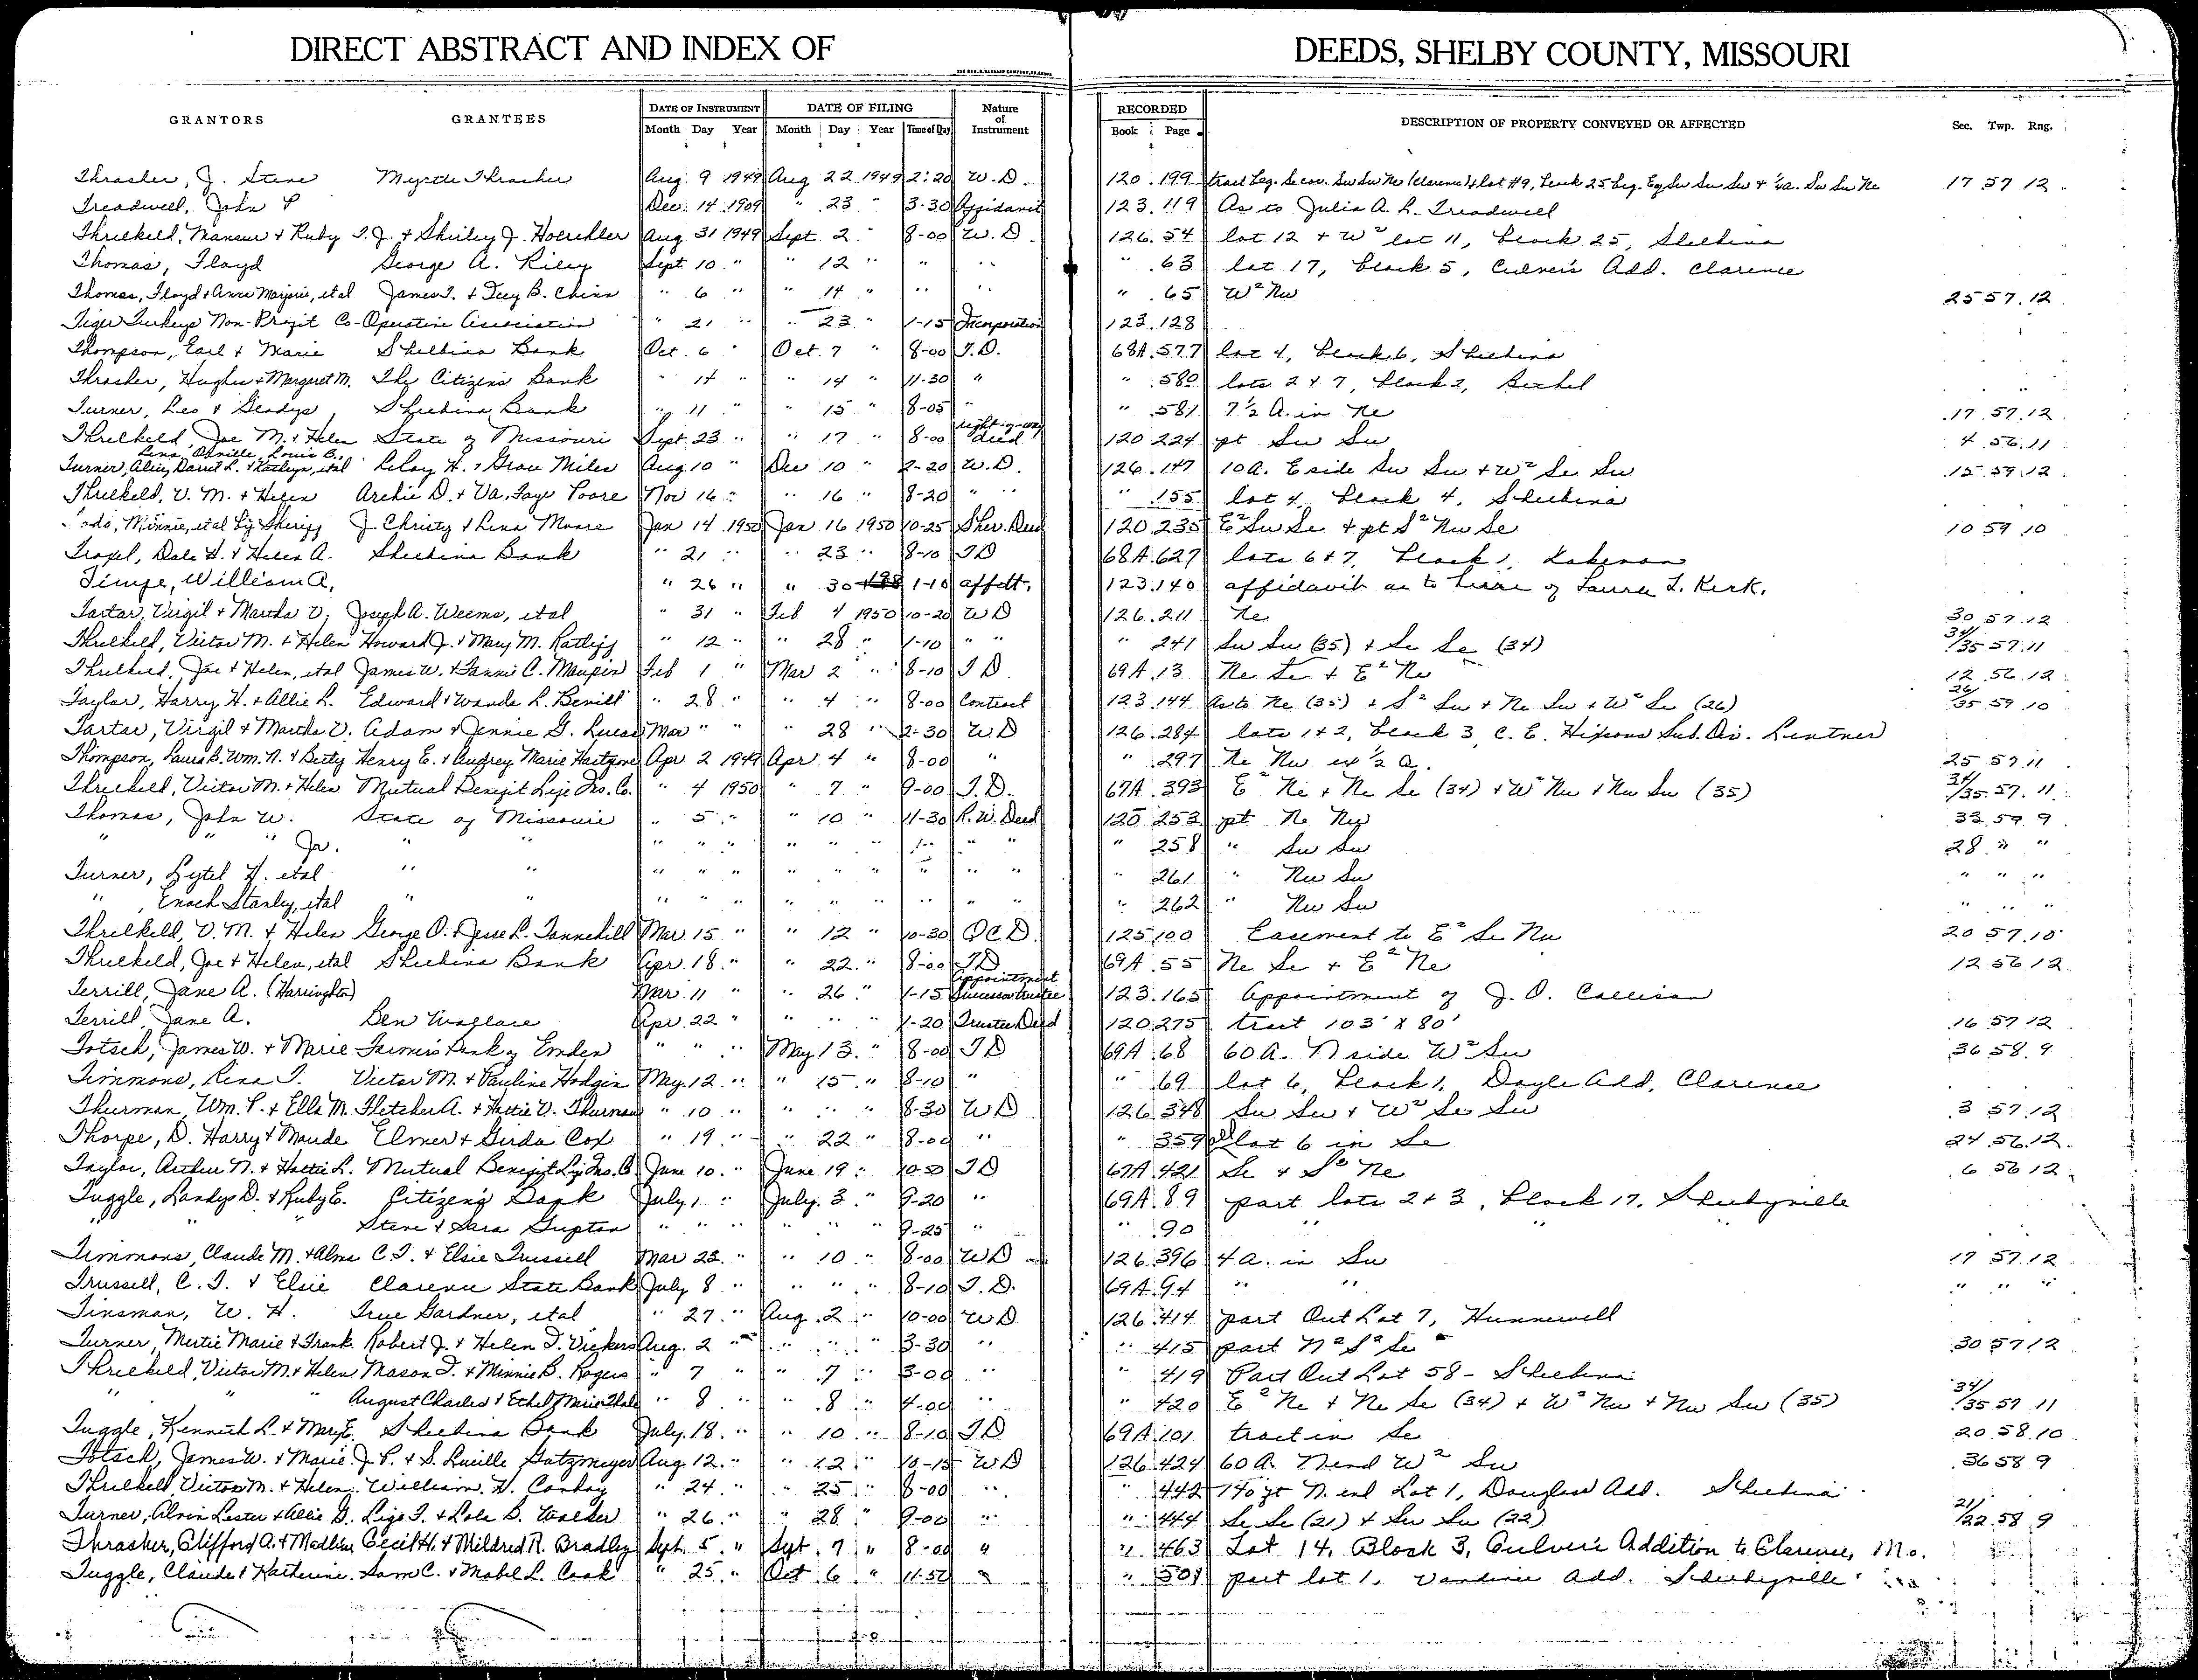 DIRECT ABSTRACT AND INDEX OF DEEDS, SHELBY COUNTY, MISSOURI
GRANTORS GRANTEES DATE OF INSTRUMENT DATE OF FILING Nature of Instrument RECORDED DESCRIPTION OF PROPERTY CONVEYED OR AFFECTED Sec. Twp. Rng.
Month Day Year Month Day Year Time of Day Book Page
Thrasher, J. Steve Myrtle Thrasher Aug 9 1949 Aug 22 1949 2:20 W.D. 120 199 tract beg. Se cor. Sw Sw Ne (Clarence) & lot #9, block 25 Sw Sw Ne 17 57 12
Treadwell, John P Dec. 14 1909 " 23 " 3-30 Affidavit 123 119 As to Julia A. L. Treadwell
Threlkeld, Mansur & Ruby T. J. & Shirley J. Hoerchler Aug 31 1949 Sept 2 " 8-00 W.D. 126 54 lot 12 + W² lot 11, block 25, Shelbina
Thomas, Floyd George A. Riley Sept 10 " " 12 " " " " 63 lot 17, block 5, Culver's Add. Clarence
Thomas, Floyd & Anna Marjorie, etal James T. & Icey B. Chinn " 6 " " 14 " " " " 65 W² Nw 25 57 12
Tiger Turkeys Non-Profit Co-Operative Association " 21 " " 23 " 1-15 Incorporation 123 128
Thompson, Earl & Marie Shelbina Bank Oct. 6 " Oct. 7 " 8-00 T.D. 68A 577 lot 4, block 6, Shelbina
Thrasher, Hughes & Margaret M. The Citizens Bank " 14 " " 14 " 11-30 " " 580 lots 2 & 7, block 2, Bethel
Turner, Leo & Gladys, Shelbina Bank " 11 " " 15 " 8-05 " " 581 7½ A. in Ne 17 57 12
Threlkeld, Joe M. & Helen State of Missouri Sept. 23 " " 17 " 8-00 right-of-way deed 120 224 pt Sw Sw 4 56 11
Lena, Orville, Louis B.,
Turner, Darrel L. & Kathryn, etal LeRoy H. & Grace Miles Aug 10 " Dec 10 " 2-20 W.D. 126 147 10 A. E side Sw Sw + W² Se Sw 15 59 12
Threlkeld, V. M. & Helen Archie D. & Va. Faye Poore Nov 16 " " 16 " 8-20 " " " 155 lot 4, block 4, Shelbina
Minnie, etal by Sheriff J. Christy & Lena Moore Jan 14 1950 Jan 16 1950 10-25 Sher. Deed 120 235 E² Sw Se + pt S² Nw Se 10 59 10
Troxel, Dale H. & Helen A. Shelbina Bank " 21 " " 23 " 8-10 TD 68A 627 lots 6 & 7, block 1, Lakenan
Timpe, William A. " 26 " " 30 1-10 affdt. 123 140 affidavit as to heirs of Laura L. Kirk.
Tartar, Virgil & Martha V. Joseph A. Weems, etal " 31 " Feb 4 1950 10-20 WD 126 211 Ne 30 57 12
Threlkeld, Victor M. & Helen Howard J. & Mary M. Ratliff " 12 " " 28 " 1-10 " " " 241 Sw Sw (35) + Se Se (34) 34/35 57 11
Threlkeld, Joe & Helen, etal James W. & Fannie C. Maupin Feb 1 " Mar 2 " 8-10 TD 69A 13 Ne Se + E² Ne 12 56 12
Taylor, Harry H. & Allie L. Edward & Wanda L. Bevill " 28 " " 4 " 8-00 Contract 123 144 As to Ne (35) + S² Sw + Ne Sw + W² Se (26) 26/35 59 10
Tartar, Virgil & Martha V. Adam & Jennie G. Lucas Mar " " " 28 " 2-30 WD 126 284 lots 1 & 2, block 3, C. E. Hixsons Sub. Div. Lentner
Thompson, Laura B. Wm. N. & Betty Henry E. & Audrey Marie Hartgrove Apr 2 1949 Apr. 4 " 8-00 " " 297 Ne Nw ex ½ a. 25 57 11
Threlkeld, Victor M. & Helen Mutual Benefit Life Ins. Co. " 4 1950 " 7 " 9-00 T.D. 67A 393 E² Ne + Ne Se (34) + W² Nw + Nw Sw (35) 34/35 57 11
Thomas, John W. State of Missouri " 5 " " 10 " 11-30 R.W. Deed 120 253 pt Ne Nw 33 59 9
" " " Jr. " " " " " " " " " " " " 258 " Sw Sw 28 " "
Turner, Lytel H. etal " " " " " " " " " " " " 261 " Nw Sw " " "
" , Enoch Stanley, etal " " " " " " " " " " " " 262 " Nw Sw " " "
Threlkeld, V. M. & Helen George O. & Jesse L. Tannehill Mar 15 " " 12 " 10-30 QCD. 125 100 Easement to E² Se Nw 20 57 10
Threlkeld, Joe & Helen, etal Shelbina Bank Apr. 18 " " 22 " 8-00 TD 69A 55 Ne Se + E² Ne 12 56 12
Terrill, Jane A. (Harrington) Mar. 11 " " 26 " 1-15 Appointment Successor trustee 123 165 Appointment of J. O. Collison
Terrill, Jane A. Ben Wallace Apr. 22 " " " " 1-20 Trustee Deed 120 275 tract 103' X 80' 16 57 12
Totsch, James W. & Marie Farmers Bank of Emden " " " May 13 " 8-00 TD 69A 68 60 A. N side W² Sw 36 58 9
Timmons, Rena T. Victor M. & Pauline Hodgin May 12 " " 15 " 8-10 " " 69 lot 6, block 1, Doyle Add. Clarence
Thurman, Wm. P. & Ella M. Fletcher A. & Hattie V. Thurman " 10 " " " " 8-30 WD 126 348 Sw Sw + W² Se Sw 3 57 12
Thorpe, D. Harry & Maude Elmer & Girda Cox " 19 " " 22 " 8-00 " " 359 all lot 6 in Se 24 56 12
Taylor, Arthur N. & Hattie L. Mutual Benefit Life Ins. Co June 10 " June 19 " 10-50 TD 67A 421 Se + S² Ne 6 56 12
Tuggle, Landys D. & Ruby E. Citizens Bank July 1 " July 3 " 9-20 " 69A 89 part lots 2 & 3, block 17, Shelbyville
" " " Steve & Sara Gupton " " " " " " 9-25 " " 90 " " "
Timmons, Claude M. & Alma C. T. & Elsie Trussell Mar 23 " " 10 " 8-00 WD 126 396 4 a. in Sw 17 57 12
Trussell, C. T. & Elsie Clarence State Bank July 8 " " " " 8-10 T.D. 69A 94 " " " " "
Tinsman, W. H. True Gardner, etal " 27 " Aug. 2 " 10-00 WD 126 414 part Out Lot 7, Hunnewell
Turner, Mertie Marie & Frank Robert J. & Helen T. Vickers Aug. 2 " " " " 3-30 " " 415 part N² S² Se 30 57 12
Threlkeld, Victor M. & Helen Mason T. & Minnie B. Rogers " 7 " " 7 " 3-00 " " 419 Part Out Lot 58 - Shelbina
" " " August Charles & Ethel Marie Thale " 8 " " 8 " 4-00 " " 420 E² Ne + Ne Se (34) + W² Nw + Nw Sw (35) 34/35 57 11
Tuggle, Kenneth L. & Mary E. Shelbina Bank July 18 " " 10 " 8-10 TD 69A 101 tract in Se 20 58 10
Totsch, James W. & Marie J. P. & S. Lucille Gatzmeyer Aug. 12 " " 12 " 10-15 WD 126 424 60 A. N end W² Sw 36 58 9
Threlkeld, Victor M. & Helen William H. Conboy " 24 " " 25 " 8-00 " " 442 140 ft N. end Lot 1, Douglass Add. Shelbina
Turner, Alvin Lester & Allie G. Lige T. & Lola B. Walker " 26 " " 28 " 9-00 " " 444 Se Se (21) + Sw Sw (22) 21/22 58 9
Thrasher, Clifford A. & Madline Cecil H. & Mildred R. Bradley Sept. 5 " Sept. 7 " 8-00 " " 463 Lot 14, Block 3, Culver's Addition to Clarence, Mo.
Tuggle, Claude & Katherine Sam C. & Mabel L. Cook " 25 " Oct 6 " 11-50 " " 501 part lot 1, Add. Shelbyville